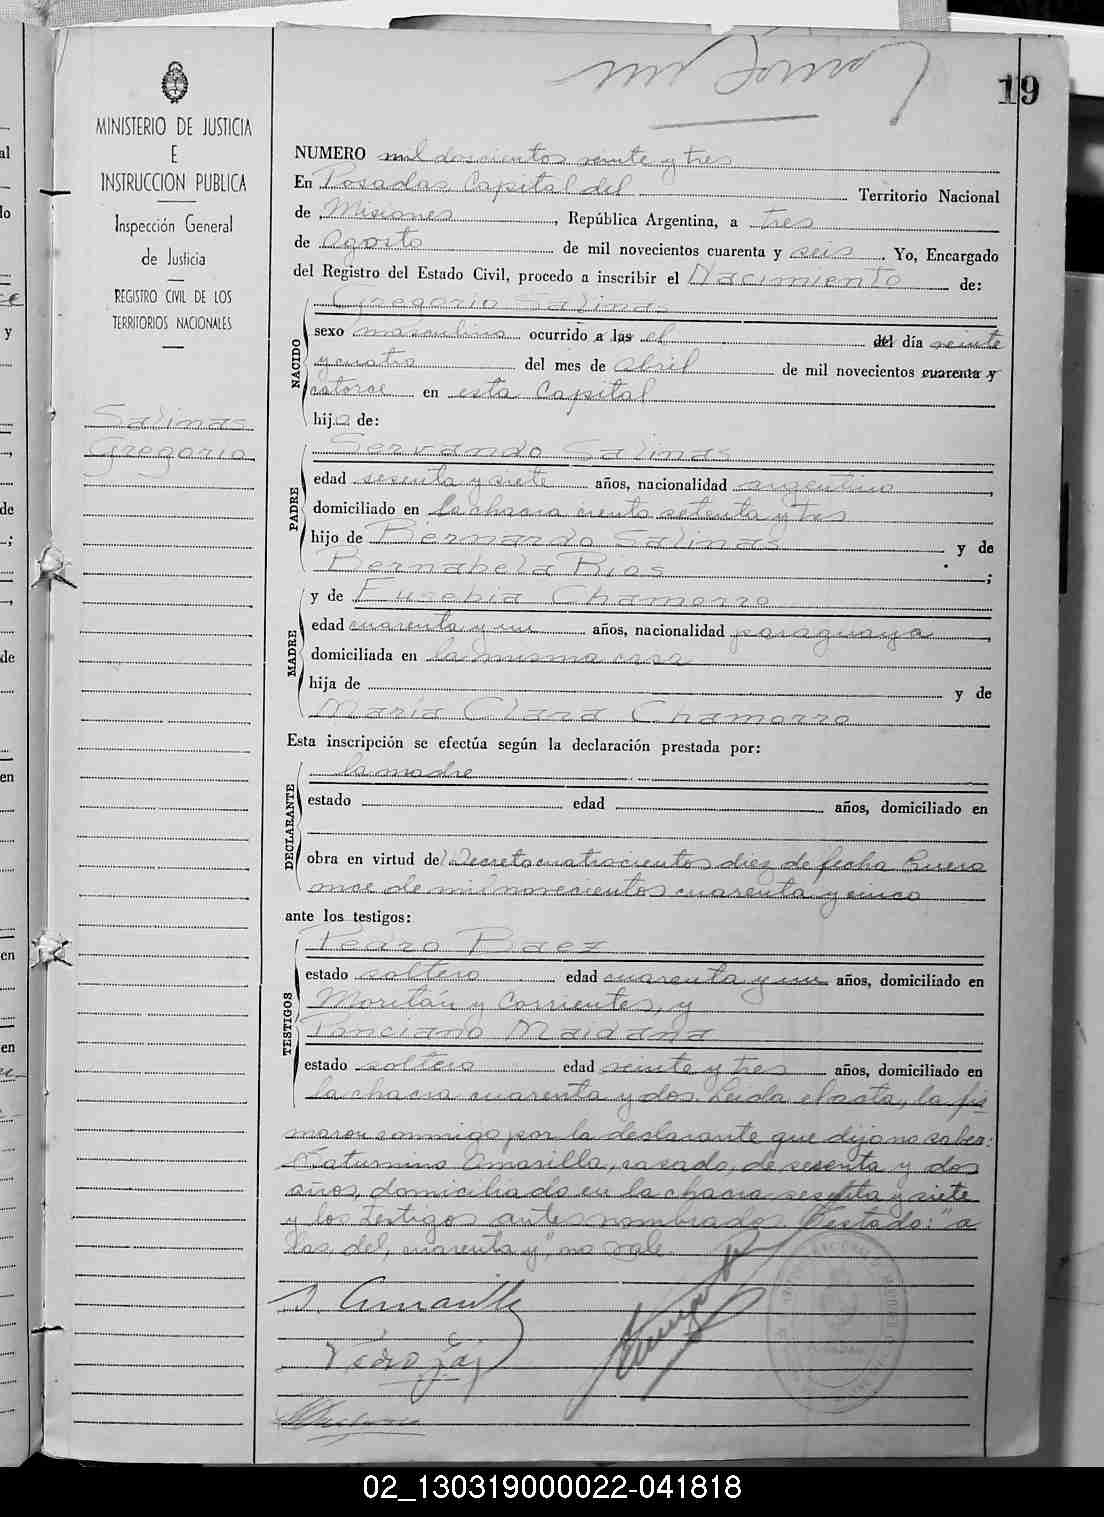 19
MINISTERIO DE JUSTICIA
E
INSTRUCCION PUBLICA
Inspección General
de Justicia
REGISTRO CIVIL DE LOS
TERRITORIOS NACIONALES
Salinas
Gregorio
NUMERO mil doscientos veinte y tres
En Posadas Capital del Territorio Nacional
de Misiones, República Argentina, a tres
de Agosto de mil novecientos cuarenta y seis. Yo, Encargado
del Registro del Estado Civil, procedo a inscribir el Nacimiento de:
NACIDO
Gregorio Salinas
sexo masculino ocurrido a las el del día veinte
y cuatro del mes de abril de mil novecientos cuarenta y
catorce en esta Capital
hijo de:
PADRE
Servando Salinas
edad sesenta y siete años, nacionalidad argentino,
domiciliado en la chacra ciento setenta y tres
hijo de Bernardo Salinas y de
Bernabela Rios;
MADRE
y de Eusebia Chamorro
edad cuarenta y un años, nacionalidad paraguaya,
domiciliada en la misma casa
hija de y de
María Clara Chamorro
Esta inscripción se efectúa según la declaración prestada por:
DECLARANTE
la madre
estado edad años, domiciliado en
obra en virtud del Decreto cuatrocientos diez de fecha Enero
once de mil novecientos cuarenta y cinco
ante los testigos:
TESTIGOS
Pedro Baez
estado soltero edad cuarenta y un años, domiciliado en
Moritán y Corrientes, y
Ponciano Maidana
estado soltero edad veinte y tres años, domiciliado en
la chacra cuarenta y dos. Leida el acta, la fir
maron conmigo por la declarante que dijo no saber:
Saturnino Amarilla, casado, de sesenta y dos
años, domiciliado en la chacra sesenta y siete
y los testigos antes nombrados. Testado: "a
las, del, cuarenta y", no vale.
S. Amarilla
Pedro
02_130319000022-041818